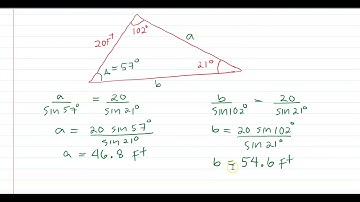 20FT
102°
a
A=57°
21°
b
a/sin57° = 20/sin21°
a = 20 sin57°/sin21°
a = 46.8 ft
b/sin102° = 20/sin21°
b = 20 sin102°/sin21°
b = 54.6 ft